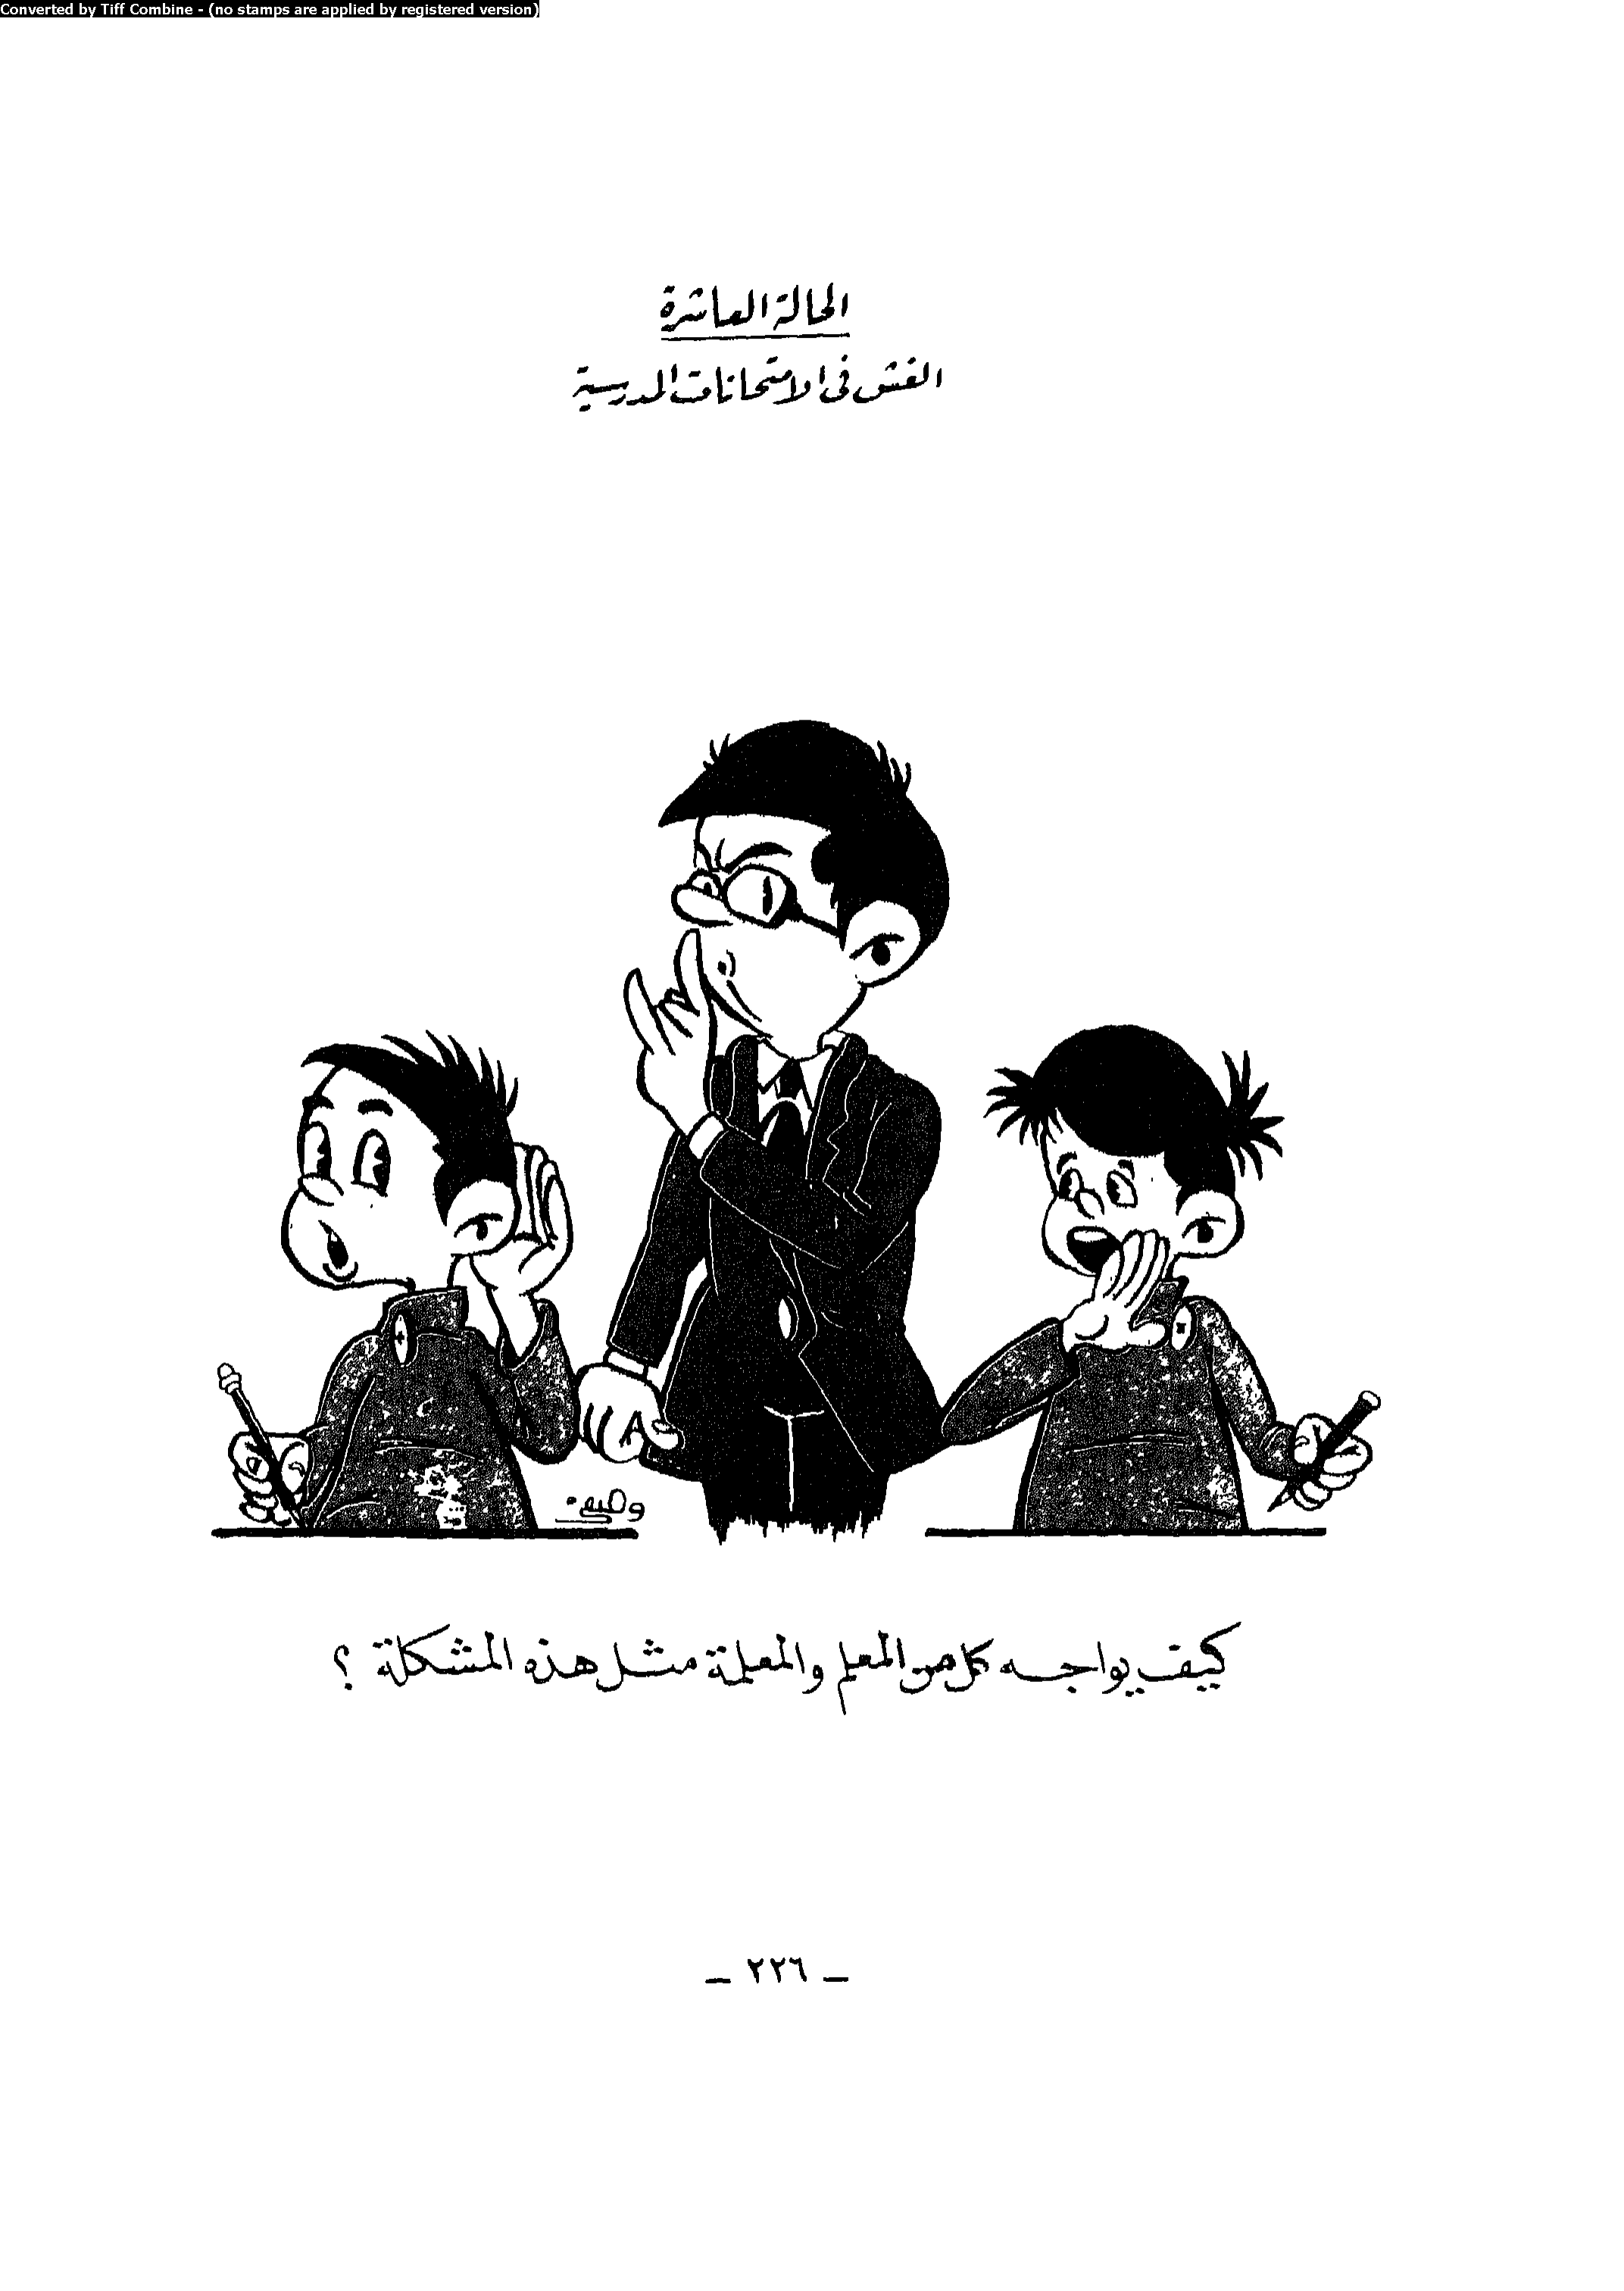 Converted by Tiff Combine - (no stamps are applied by registered version)
الحالة العاشرة
الغش فى الامتحانات المدرسية
كيف يواجه كل من المعلم والمعلمة مثل هذه المشكلة ؟
ــ ٢٢٦ ــ